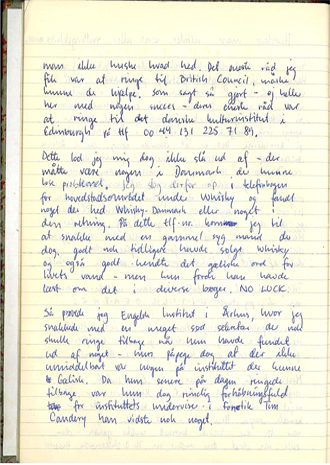 man ikke huske hvad hed. Det eneste råd jeg
fik var at ringe til British Council, måske
kunne de hjælpe, som sagt så gjort - ej heller
her med nogen succes - deres eneste råd var
at ringe til det danske kulturinstitut i
Edinburgh på tlf 00 44 131 225 71 89.
Dette lod jeg mig dog ikke slå ud af - der
måtte være nogen i Danmark der kunne
løse problemet. Jeg slog derfor op i telefonbogen
for hovedstadsområdet under Whisky og fandt
noget der hed Whisky-Danmark eller noget i
den retning. På dette tlf-nr. kom jeg til
at snakke med en gammel syg mand der
dog godt nok tidligere havde solgt Whisky
og også godt kendte det gæliske ord for
livets vand - men kun fordi han havde
læst om det i diverse bøger. NO LUCK.
Så prøvede jeg Engelsk Institut i Århus, hvor jeg
snakkede med en meget sød sekretær der nok
skulle ringe tilbage når hun havde fundet
ud af noget - hun påpegede dog at der ikke
umiddelbart var nogen på instituttet der kunne
Gælisk. Da hun senere på dagen ringede
tilbage var hun dog rimelig forhåbningsfuld
for instituttets underviser i Tim
Caudery han vidste nok noget.